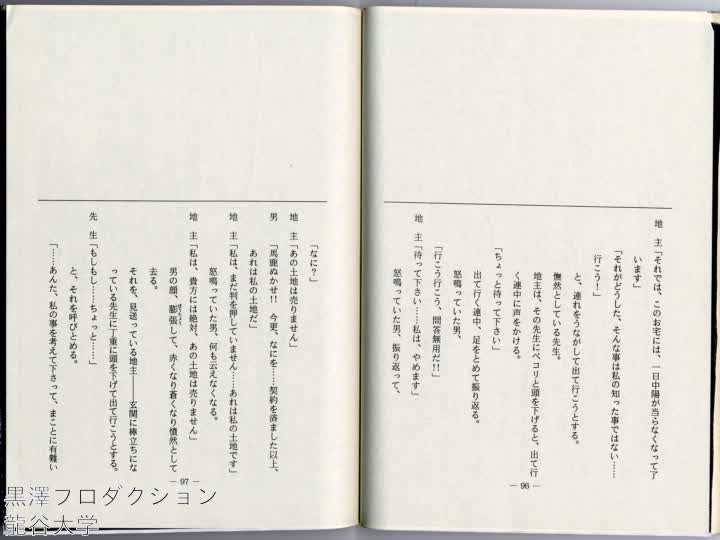 地　主「それでは、このお宅には、一日中陽が当らなくなって了
います」
「それがどうした、そんな事は私の知った事ではない……
行こう！」
と、連れをうながして出て行こうとする。
憮然としている先生。
地主は、その先生にペコリと頭を下げると、出て行
く連中に声をかける。
「ちょっと待って下さい」
出て行く連中、足をとめて振り返る。
怒鳴っていた男、
「行こう行こう、問答無用だ!!」
地　主「待って下さい……私は、やめます」
怒鳴っていた男、振り返って、
― 96 ―
「なに？」
地　主「あの土地は売りません」
男　「馬鹿ぬかせ!!　今更、なにを……契約を済ました以上、
あれは私の土地だ」
地　主「私は、まだ判を押していません……あれは私の土地です」
怒鳴っていた男、何も云えなくなる。
地　主「私は、貴方には絶対、あの土地は売りません」
男の顔、膨張して、赤くなり蒼くなり憤然として
去る。
それを、見送っている地主――玄関に棒立ちにな
っている先生に丁重に頭を下げて出て行こうとする。
先　生「もしもし……ちょっと……」
と、それを呼びとめる。
「……あんた、私の事を考えて下さって、まことに有難い
― 97 ―
黒澤プロダクション
龍谷大学